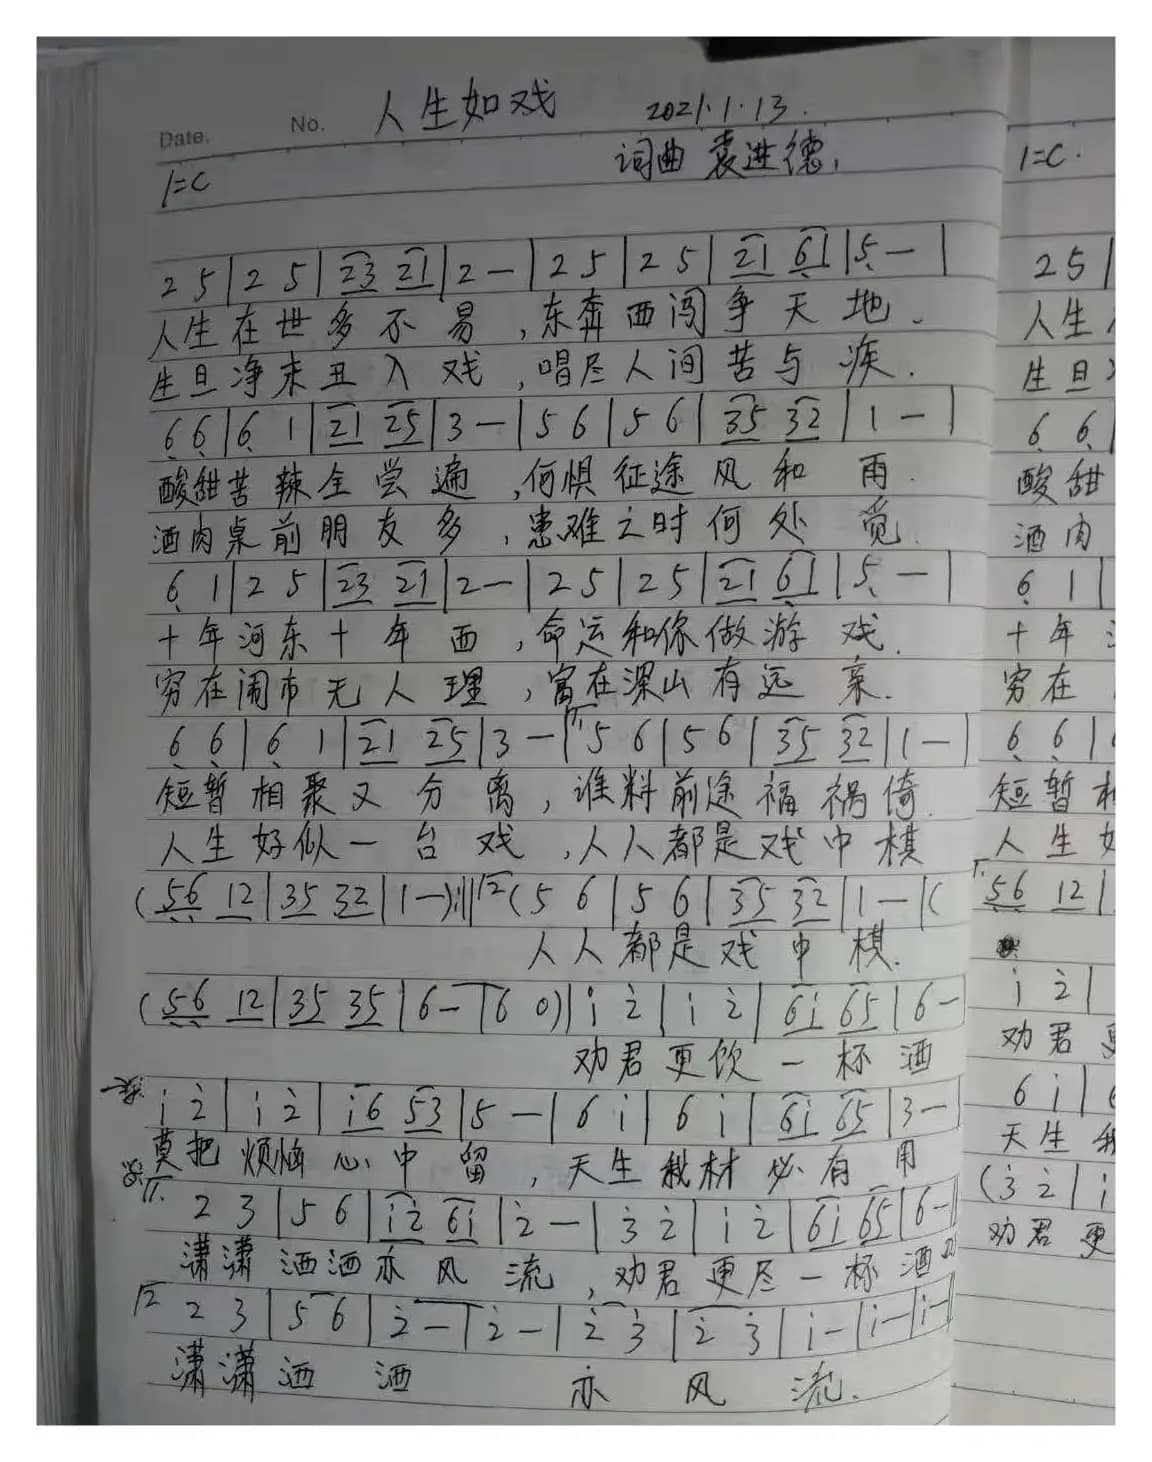 人生如戏 2021.1.13.
Date. No.
词曲 袁进德.
1=C
2 5 | 2 5 | 23 21 | 2 — | 2 5 | 2 5 | 21 61 | 5 — |
人生在世多不易,东奔西闯争天地.
生旦净末丑入戏,唱尽人间苦与疾.
6 6 | 6 1 | 21 25 | 3 — | 5 6 | 5 6 | 35 32 | 1 — |
酸甜苦辣全尝遍,何惧征途风和雨.
酒肉桌前朋友多,患难之时何处觅.
6 1 | 2 5 | 23 21 | 2 — | 2 5 | 2 5 | 21 61 | 5 — |
十年河东十年西,命运和你做游戏.
穷在闹市无人理,富在深山有远亲.
6 6 | 6 1 | 21 25 | 3 — | 1. 5 6 | 5 6 | 35 32 | 1 — |
短暂相聚又分离,谁料前途福祸倚.
人生好似一台戏,人人都是戏中棋
(56 12 | 35 32 | 1 —) :|| 2 (5 6 | 5 6 | 35 32 | 1 — | (
人人都是戏中棋.
(56 12 | 35 35 | 6 — | 6 0) | i 2 | i 2 | 6i 65 | 6 —
劝君更饮一杯酒
i 2 | i 2 | i6 53 | 5 — | 6 i | 6 i | 6i 65 | 3 —
莫把烦恼心中留,天生我材必有用
1. 2 3 | 5 6 | i2 6i | 2 — | 3 2 | i 2 | 6i 65 | 6 —
潇潇洒洒亦风流,劝君更尽一杯酒
2 2 3 | 5 6 | 2 — | 2 — | 2 3 | 2 3 | i — | i — | i —
潇潇洒洒亦风流.
1=C.
2 5 |
人生
生旦
6 6
酸甜
酒肉
6 1 |
十年
穷在
6 6 |
短暂
人生
56 12 |
i 2 |
劝君
6 i |
天生我
(3 2 | i
劝君更